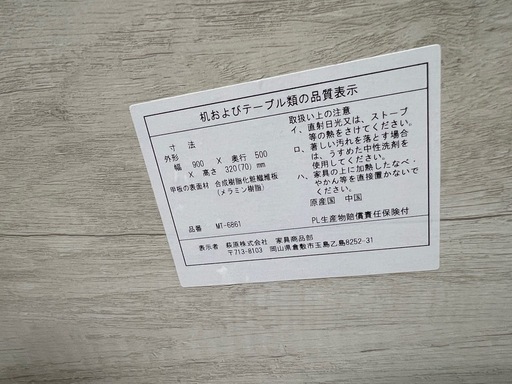 机およびテーブル類の品質表示
寸 法
外形
幅 900 X 奥行 500
X 高さ 320(70) mm
甲板の表面材 合成樹脂化粧繊維板
(メラミン樹脂)
品番 MT-6861
取扱い上の注意
イ、直射日光又は、ストーブ
等の熱をさけてください。
ロ、著しい汚れを落とす場合
は、うすめた中性洗剤を
使用してください。
ハ、家具の上に加熱したなべ・
やかん等を直接置かないで
ください。
原産国 中国
PL生産物賠償責任保険付
表示者 萩原株式会社 家具商品部
〒713-8103 岡山県倉敷市玉島乙島8252-31